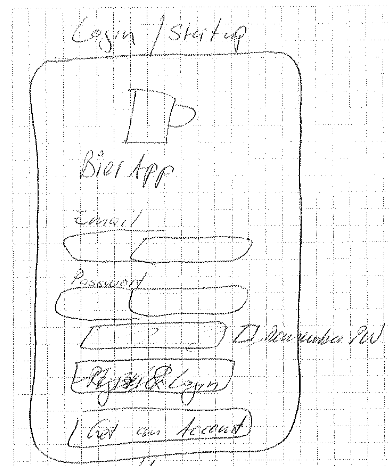 Login / Startup
Bier App
Email
Password
?
Remember PW
& Login
Got an Account